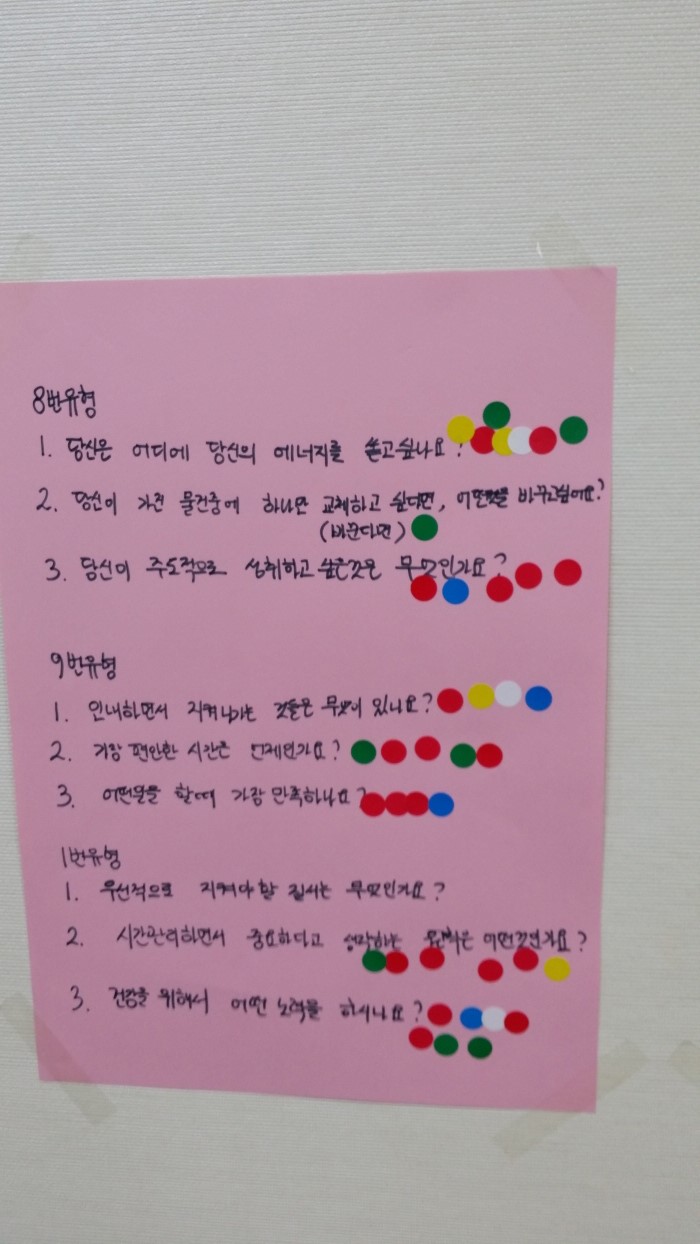 8번유형
1. 당신은 어디에 당신의 에너지를 쓰고싶나요?
2. 당신이 가진 물건중에 하나만 교체하고 싶다면, 어떤것을 바꾸고싶어요?
(바꾼다면)
3. 당신이 주도적으로 성취하고 싶은것은 무엇인가요?
9번유형
1. 인내하면서 지켜나가는 것들은 무엇이 있나요?
2. 가장 편안한 시간은 언제인가요?
3. 어떤일을 할때 가장 만족하나요?
1번유형
1. 우선적으로 지켜야할 질서는 무엇인가요?
2. 시간관리하면서 중요하다고 생각하는 원칙은 어떤것인가요?
3. 건강을 위해서 어떤 노력을 하시나요?